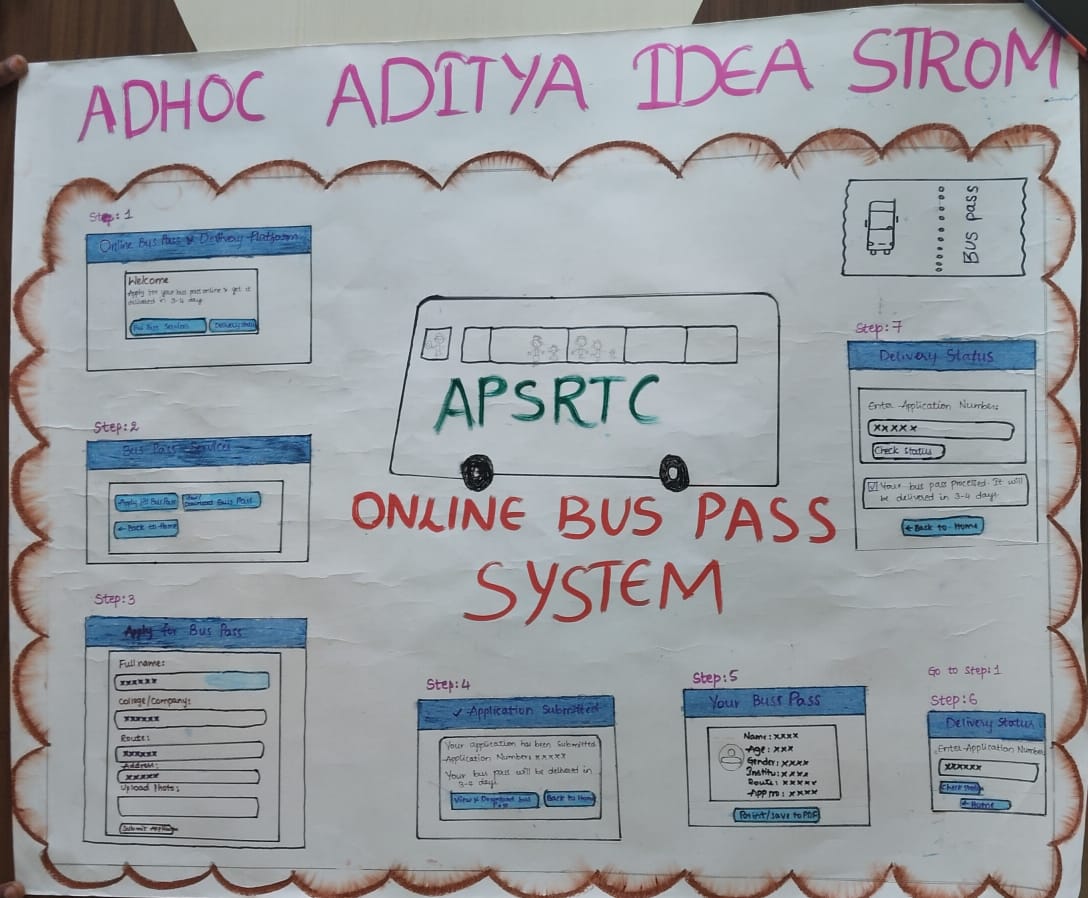 ADHOC ADITYA IDEA STROM
Step: 1
Online Bus Pass & Delivery Platform
Welcome
Apply for your bus pass online & get it
delivered in 3-4 days
Bus Services
Delivery Status
Step:2
Bus Pass Services
Apply Bus Pass
View/
Download Bus Pass
← Back to Home
Step:3
Apply for Bus Pass
Full name:
xxxxxx
College/Company:
xxxxxx
Route:
xxxxxx
Address:
xxxxx
Upload Photo:
Submit
APSRTC
ONLINE BUS PASS
SYSTEM
Step:4
✓ Application Submitted
Your application has been submitted
Application Number: xxxxx
Your bus pass will be delivered in
3-4 days
View & Download bus
Pass
Back to Home
Step:5
Your Buss Pass
Name: xxxx
Age: xxx
Gender: xxxx
Institu: xxxx
Route: xxxxx
App no: xxxx
Print/save to PDF
Go to Step:1
Step:6
Delivery Status
Enter Application Number
xxxxxx
Check Status
← Home
BUS PASS
Step:7
Delivery Status
Enter Application Number:
xxxxx
Check Status
☑ Your bus pass processed. It will
be delivered in 3-4 days
← Back to Home